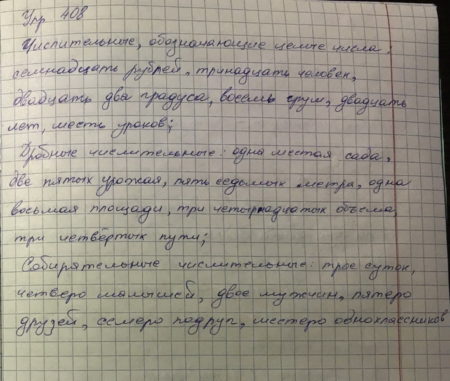 Упр 408
Числительные, обозначающие целые числа:
семнадцать рублей, тринадцать человек,
двадцать два градуса, восемь груш, двадцать
лет, шесть уроков;
Дробные числительные: одна шестая сада,
две пятых урожая, пять седьмых метра, одна
восьмая площади, три четырнадчатых объема,
три четвёртых пути;
Собирательные числительные: трое суток,
четверо малышей, двое мужчин, пятеро
друзей, семеро подруг, шестеро одноклассников